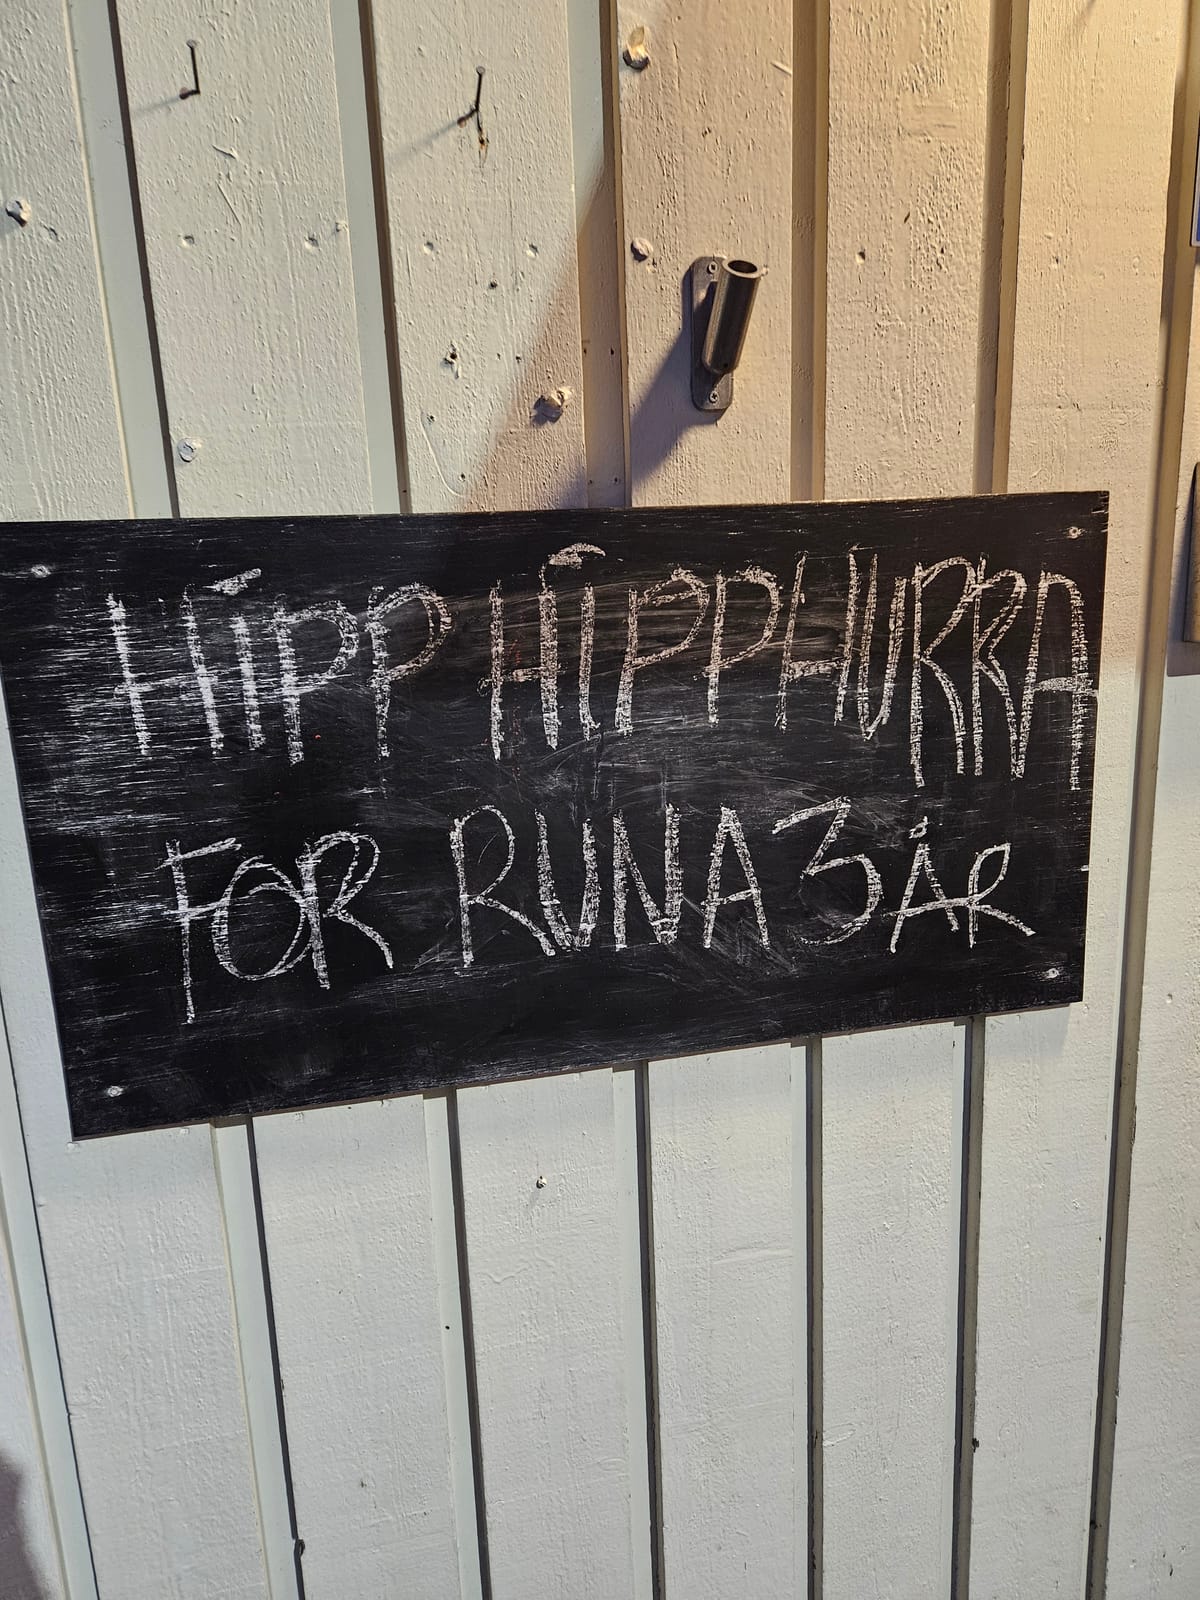 HIPP HIPP HURRA
FOR RUNA 3 ÅR